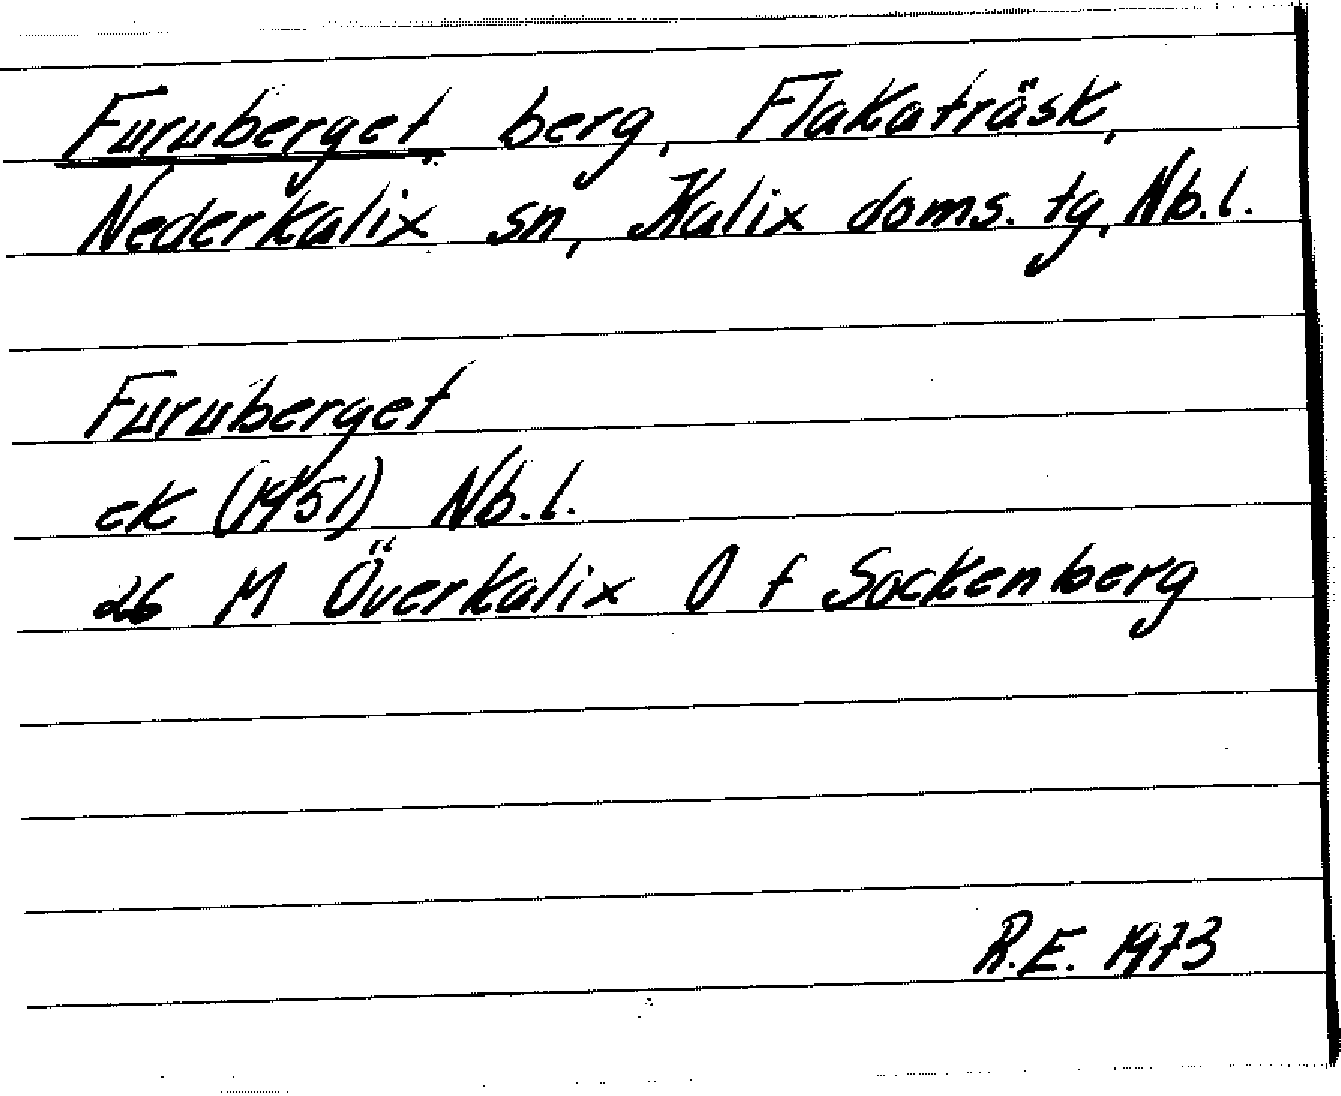 Furuberget, berg, Flakaträsk,
Nederkalix sn, Kalix doms. tg, Nb.l.
Furuberget
ek (1951) Nb.l.
26 M Överkalix O f Sockenberg
R.E. 1973